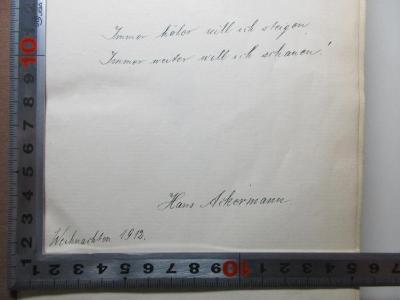 Immer höher will ich steigen,
Immer weiter will ich schauen!
Hans Ackermann
Weihnachten 1912.
10 9 8 7 6 5 4 3 2 1
4 3 2 1 1 2 3 4 5 6 7 8 9 10 1 2 3 4 5